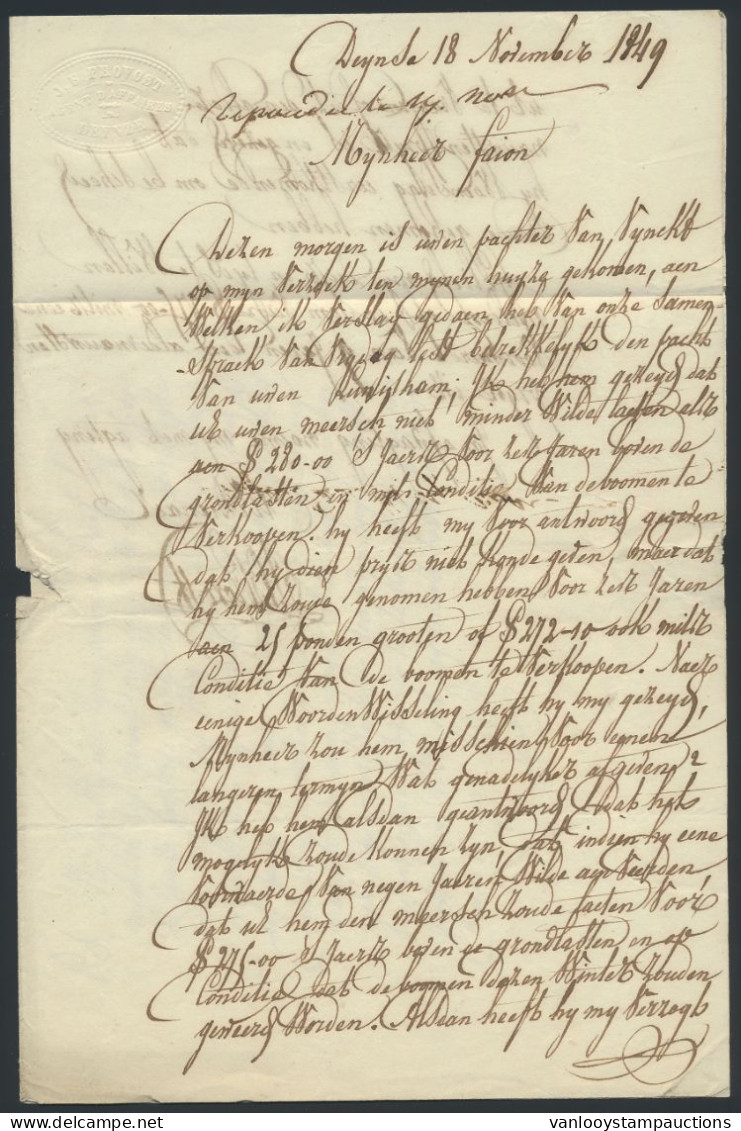 J. PROVOST
DEYNZE
Deynse 18 November 1849
Mynheer
Dezen morgen is uwen pachter Van Vynckt
op myn Verzoek ten mynen huyze gekomen, aen
Welken ik Verslag gedaen heb Van onze Samen-
Spraek Van Vrydag lest betrekkelyk den pacht
Van uwen ; Ik heb hem gezeyd dat
uwen meersch niet minder Wilde laeten als
aen $ 280-00 'S Jaers Voor zes Jaren boven de
grondlasten in mits Conditie Van de boomen te
Verkoopen. hy heeft my Voor antwoord gegeven
dat hy dien prys niet konde geven, maer dat
hy hem Zoude genomen hebben Voor zes Jaren
aen 25 ponden grooten of $ 272-10 ook mits
Conditie Van de boomen te Verkoopen. Naer
eenige WoordenWisseling heeft hy my gezeyd,
Mynheer zou hem misschien Voor eenen
langeren termyn Wat genadelyker afgeven?
Ik heb hem alsdan geantwoord dat het
mogelyk Zoude konnen zyn, dat indien hy eene
Voorwaerde Van negen Jaeren Wilde aenveerden
dat hem den meersch Zoude laeten Voor
$ 275-00 'S Jaers boven de grondlasten, en op
Conditie dat de boomen dezen Winter Zouden
geweerd Worden. Alsdan heeft hy my Verzogt
vanlooystampauctions